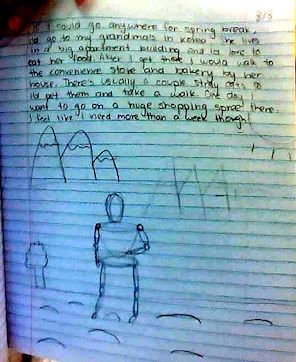 3/5
If I could go anywhere for spring break
I'd go to my grandma's in Korea. She lives
in a big apartment building and I'd love to
eat her food. After I get there I would walk to
the convenience store and bakery by her
house. There's usually a couple stray cats so
I'd pet them and take a walk. One day I
want to go on a huge shopping spree there.
I feel like I need more than a week though!